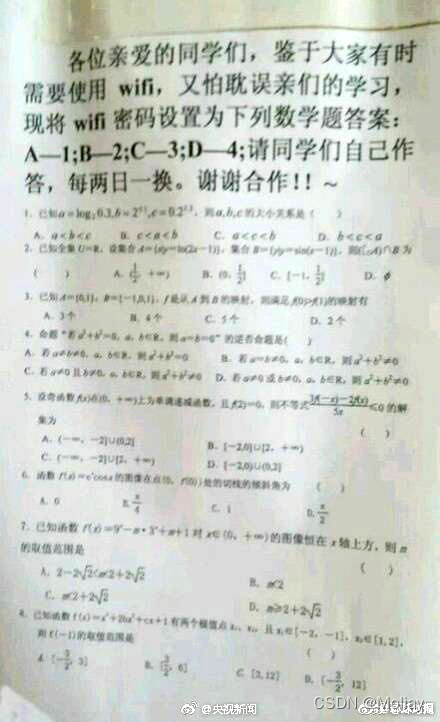 各位亲爱的同学们，鉴于大家有时
需要使用 wifi，又怕耽误亲们的学习，
现将 wifi 密码设置为下列数学题答案：
A—1;B—2;C—3;D—4;请同学们自己作
答，每两日一换。谢谢合作！！～
1. 已知a=log₂0.3,b=2^0.1,c=0.2^1.3，则a,b,c的大小关系是（ ）
A. a<b<c B. c<a<b C. a<c<b D. b<c<a
2. 已知全集 U=R，设集合 A={x|y=ln(2x-1)}，集合 B={y|y=sin(x-1)}，则(∁ᵤA)∩B 为
（ ） A. (1/2, +∞) B. (0, 1/2] C. [-1, 1/2] D. ϕ
3. 已知 A={0,1}，B={-1,0,1}，f 是从 A 到 B 的映射，则满足 f(0)>f(1)的映射有
A. 3个 B. 4个 C. 5个 D. 2个
4. 命题“若 a²+b²=0，a，b∈R，则 a=b=0”的逆否命题是( )
A. 若 a≠b≠0，a，b∈R，则 a²+b²=0 B. 若 a=b≠0，a，b∈R，则 a²+b²≠0
C. 若 a≠0 且 b≠0，a，b∈R，则 a²+b²≠0 D. 若 a≠0 或 b≠0，a，b∈R，则 a²+b²≠0
5. 设奇函数 f(x)在(0，+∞)上为单调递减函数，且 f(2)=0，则不等式 3f(-x)-2f(x)/5x ≤0 的解
集为 （ ）
A. (-∞，-2]∪(0,2] B. [-2,0]∪[2，+∞)
C. (-∞，-2]∪[2，+∞) D. [-2,0)∪(0,2]
6. 函数 f(x)=eˣcosx 的图像在点(0，f(0))处的切线的倾斜角为 （ ）
A. 0 B. π/4 C. 1 D. π/2
7. 已知函数 f(x)=9ˣ-m·3ˣ+m+1 对 x∈(0，+∞)的图像恒在 x 轴上方，则 m
的取值范围是 （ ）
A. 2-2√2<m<2+2√2 B. m<2
C. m<2+2√2 D. m≥2+2√2
8. 已知函数 f(x)=x³+2bx²+cx+1 有两个极值点 x₁、x₂，且 x₁∈[-2，-1]，x₂∈[1,2]，
则 f(-1)的取值范围是 （ ）
A. [-3/2, 3] B. [3/2, 6] C. [3,12] D. [-3/2, 12]
@央视新闻